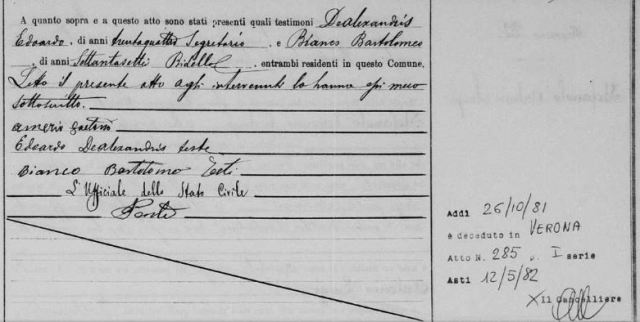 A quanto sopra e a questo atto sono stati presenti quali testimoni Dealexandris
Edoardo, di anni trentaquattro Segretario, e Bianco Bartolomeo
, di anni Settantasetti Bidello, entrambi residenti in questo Comune.
Letto il presente atto agli intervenuti lo hanno essi meco
sottoscritto.
Ameris Gaetano
Edoardo Dealexandris teste
Bianco Bartolomo Testi
L'Ufficiale dello Stato Civile
Addì 26/10/81
è deceduto in VERONA
Atto N. 285 p. I serie
Asti 12/5/82
Il Cancelliere